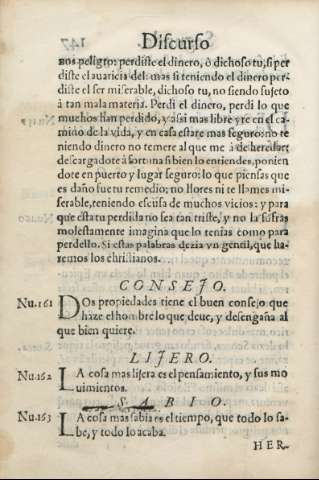 Discurso
nos peligro: perdiste el dinero, ò dichoso tu, si per
diste el auaricia del: mas si teniendo el dinero per-
diste el ser miserable, dichoso tu, no siendo sujeto
à tan mala materia. Perdi el dinero, perdi lo que
muchos han perdido, y assi mas libre yre en el ca-
mino de la vida, y en casa estare mas seguro: no te
niendo dinero no temere al que me à de heredar:
descargadote à fortuna si bien lo entiendes, ponien
dote en puerto y lugar seguro: lo que piensas que
es daño fue tu remedio; no llores ni te llames mi-
serable, teniendo escusa de muchos vicios: y para
que esta tu perdida no sea tan triste, y no la sufras
molestamente imagina que lo tenias como para
perdello. Si estas palabras dezia vn gentil, que ha-
remos los christianos.
CONSEJO.
Nu.161 DOs propiedades tiene el buen consejo que
haze el hombre lo que deue, y desengaña al
que bien quiere.
LIJERO.
Nu.162 LA cosa mas lijera es el pensamiento, y sus mo
uimientos.
SABIO.
Nu.163 LA cosa mas sabia es el tiempo, que todo lo sa-
be, y todo lo acaba.
HER-